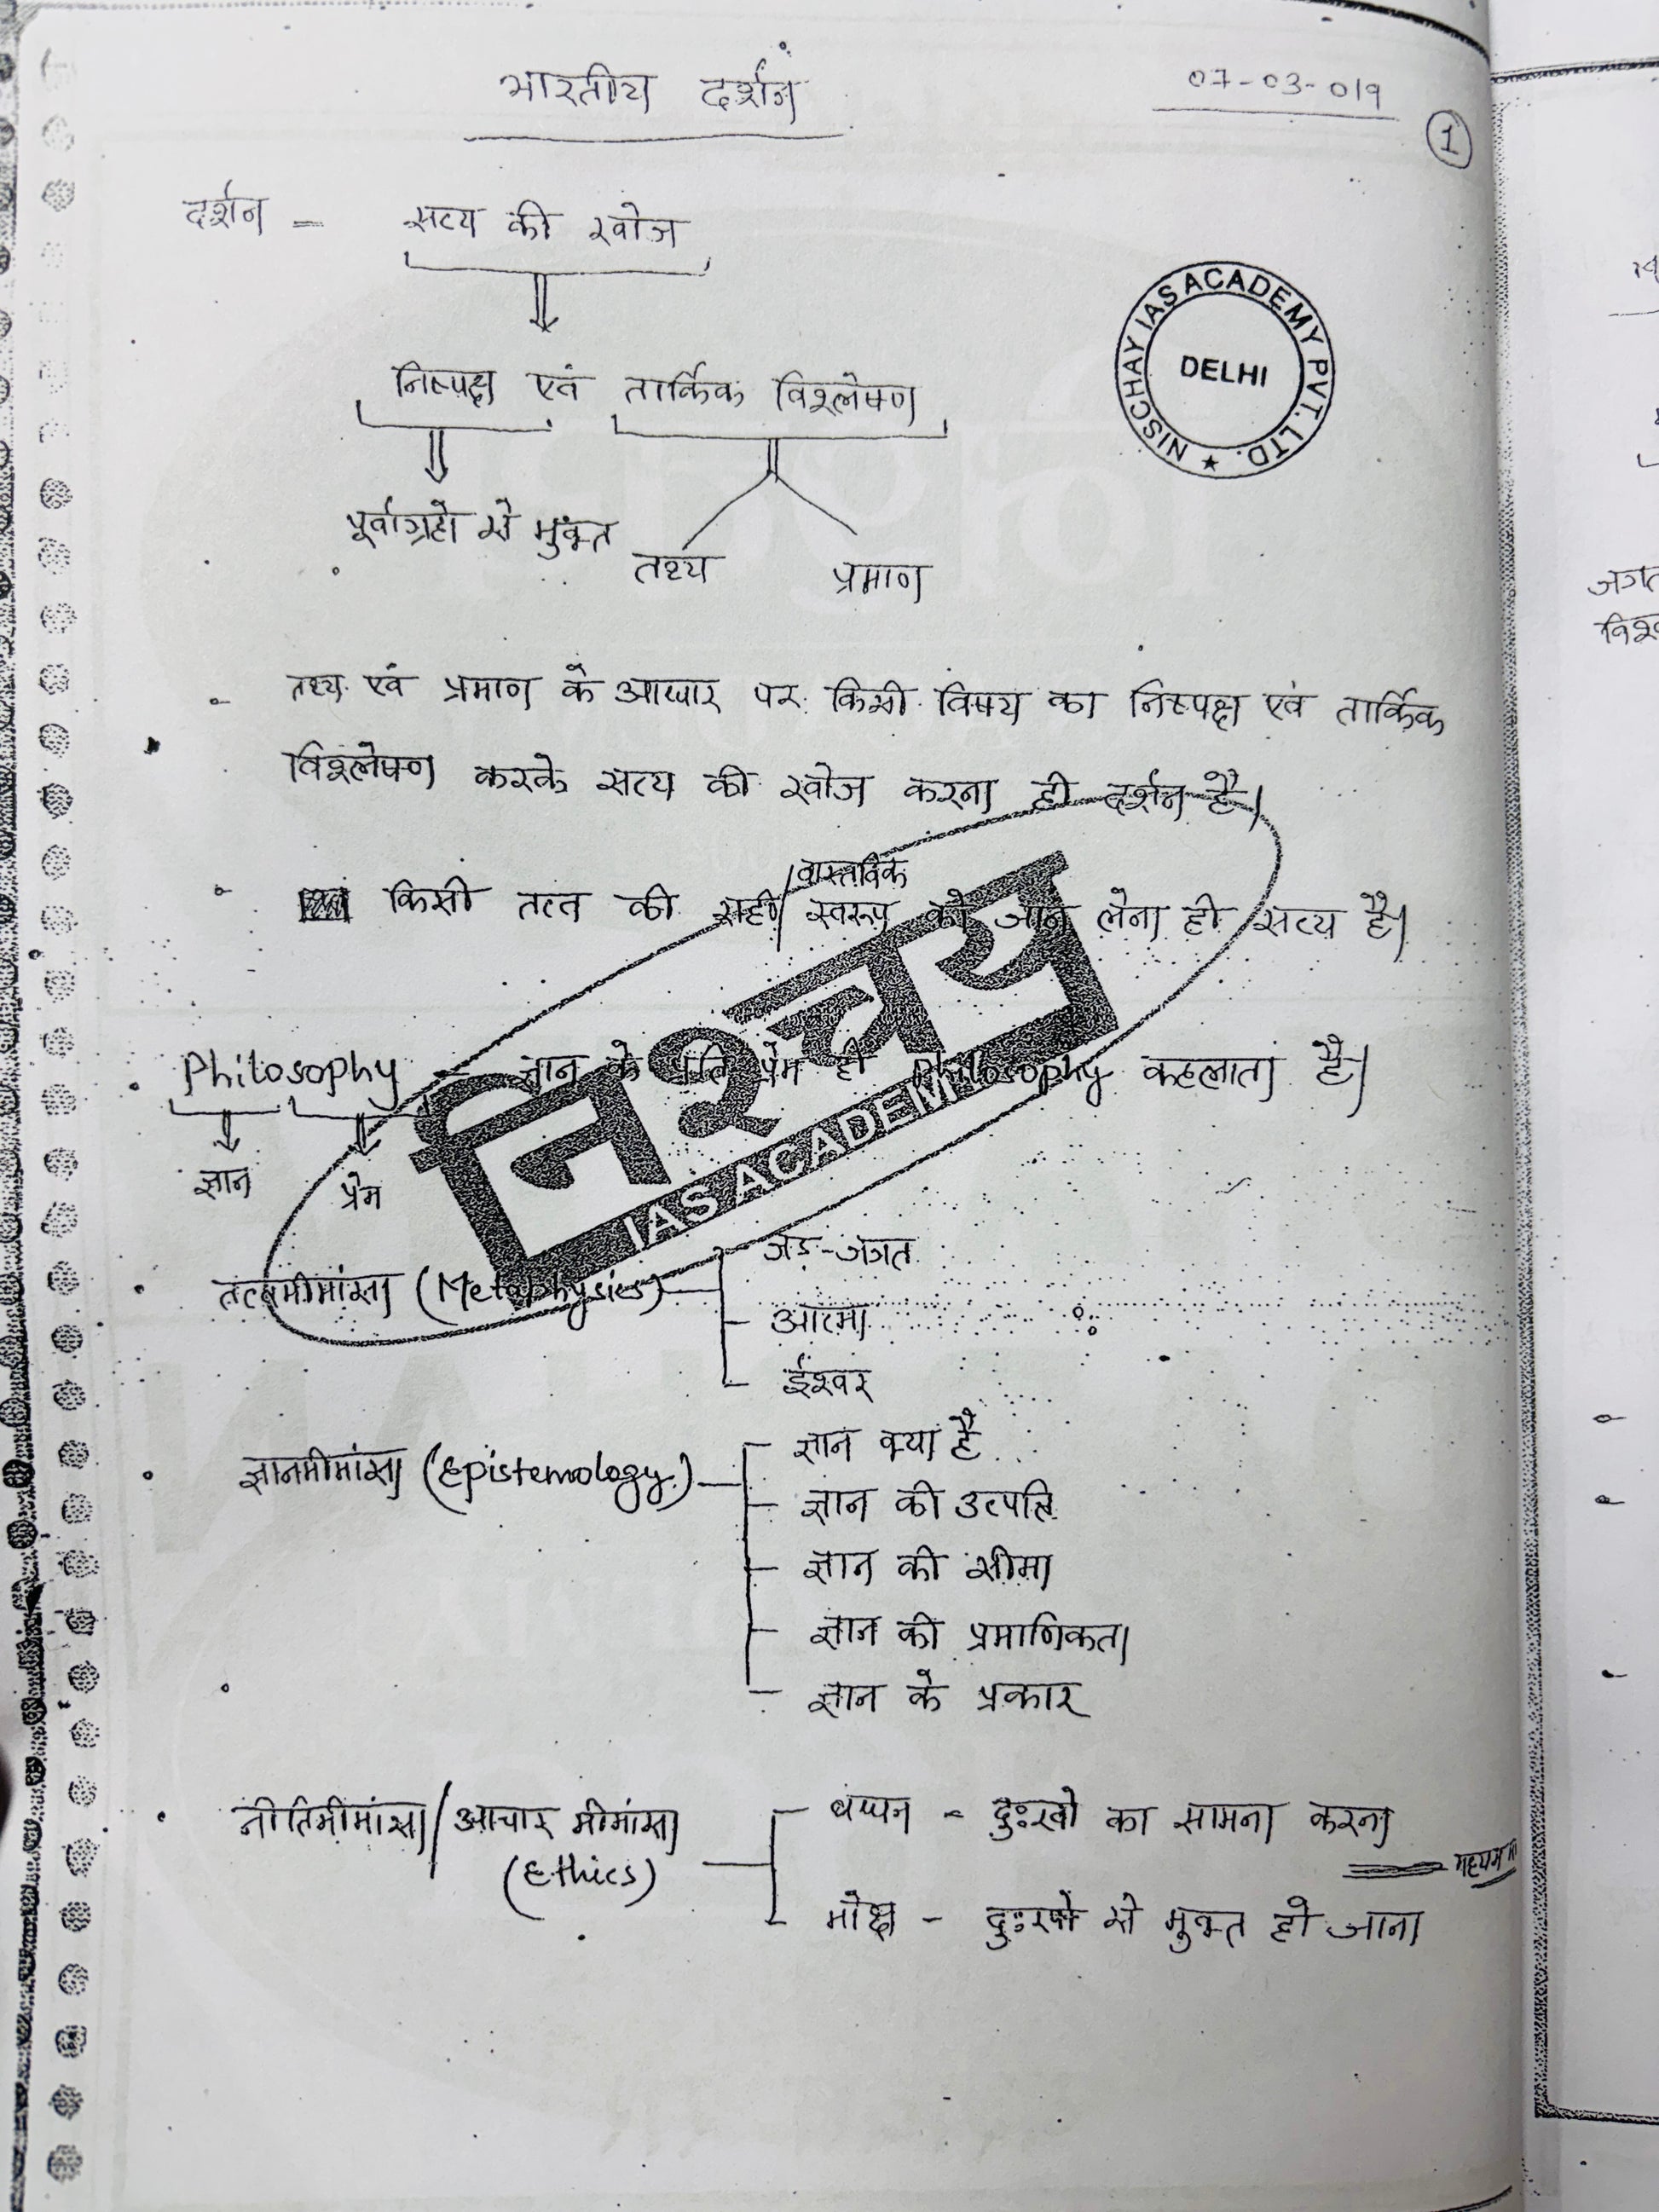 भारतीय दर्शन
07-03-019
1
दर्शन = सत्य की खोज
NISCHAY IAS ACADEMY PVT. LTD.
DELHI
निष्पक्ष एवं तार्किक विश्लेषण
पूर्वाग्रहो से मुक्त
तथ्य प्रमाण
तथ्य एवं प्रमाण के आधार पर किसी विषय का निष्पक्ष एवं तार्किक
विश्लेषण करके सत्य की खोज करना ही दर्शन है।
वास्तविक
किसी तत्व की सही/ स्वरूप को जान लेना ही सत्य है।
निश्चय
IAS ACADEMY
Philosophy - ज्ञान के प्रति प्रेम ही Philosophy कहलाता है।
ज्ञान प्रेम
जड़-जगत
तत्वमीमांसा (Metaphysics)
आत्मा
ईश्वर
ज्ञान क्या है
ज्ञानमीमांसा (Epistemology)
ज्ञान की उत्पत्ति
ज्ञान की सीमा
ज्ञान की प्रमाणिकता
ज्ञान के प्रकार
नीतिमीमांसा/आचार मीमांसा
(Ethics)
बंधन - दुःखो का सामना करना
मोक्ष - दुःखो से मुक्त हो जाना